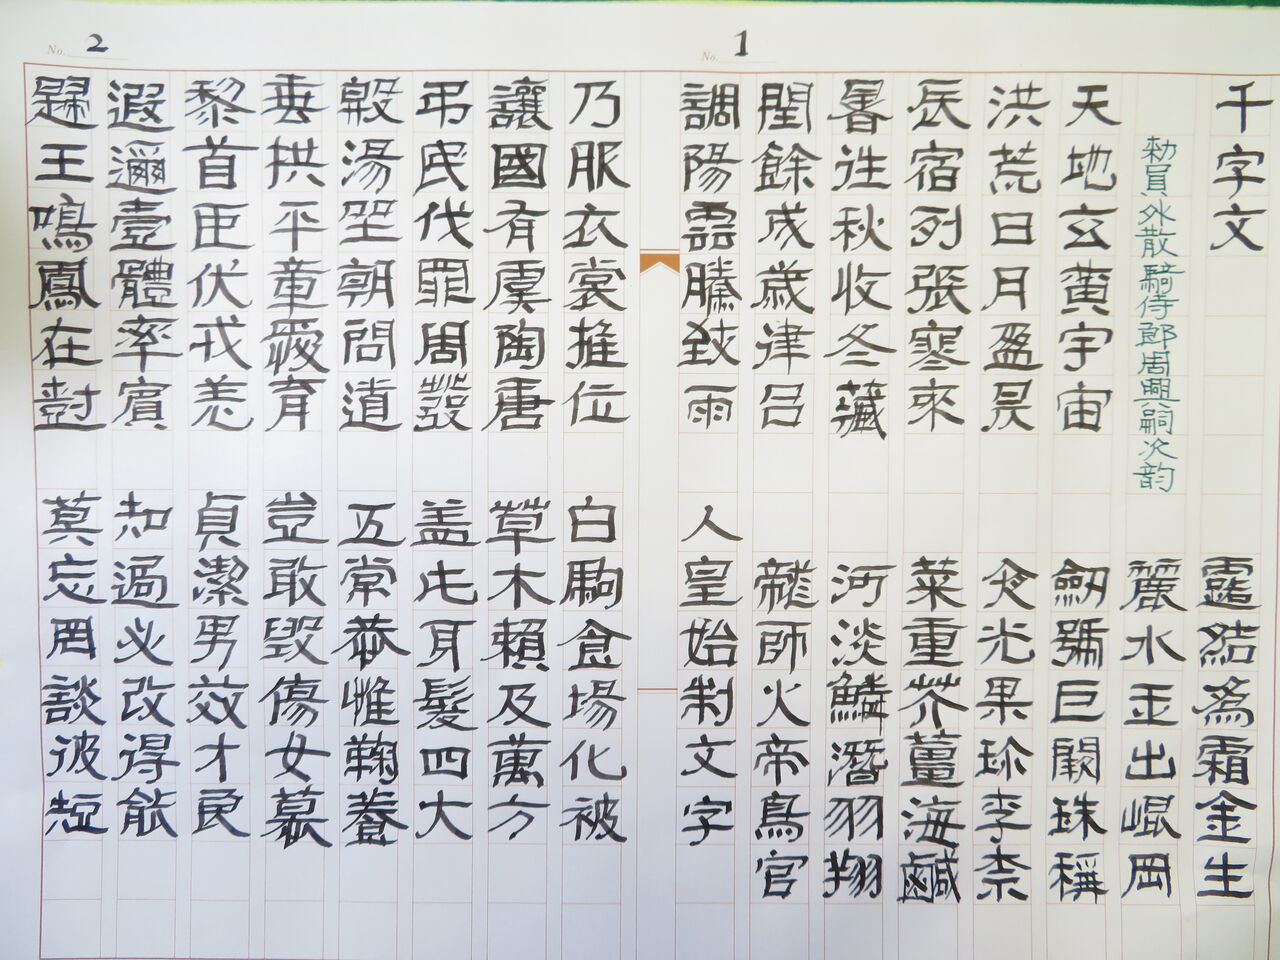 千字文
勅員外散騎侍郎周興嗣次韵
天地玄黄宇宙
洪荒日月盈昃
辰宿列張寒來
暑往秋收冬藏
閏餘成歲律呂
調陽雲騰致雨
露結爲霜金生
麗水玉出崐岡
劒號巨闕珠稱
夜光果珍李柰
菜重芥薑海鹹
河淡鱗潛羽翔
龍師火帝鳥官
人皇始制文字
1
乃服衣裳推位
讓國有虞陶唐
弔民伐罪周發
殷湯坐朝問道
垂拱平章愛育
黎首臣伏戎羌
遐邇壹體率賓
歸王鳴鳳在樹
白駒食場化被
草木賴及萬方
盖此身髮四大
五常恭惟鞠養
豈敢毀傷女慕
貞潔男效才良
知過必改得能
莫忘罔談彼短
2
No.
No.